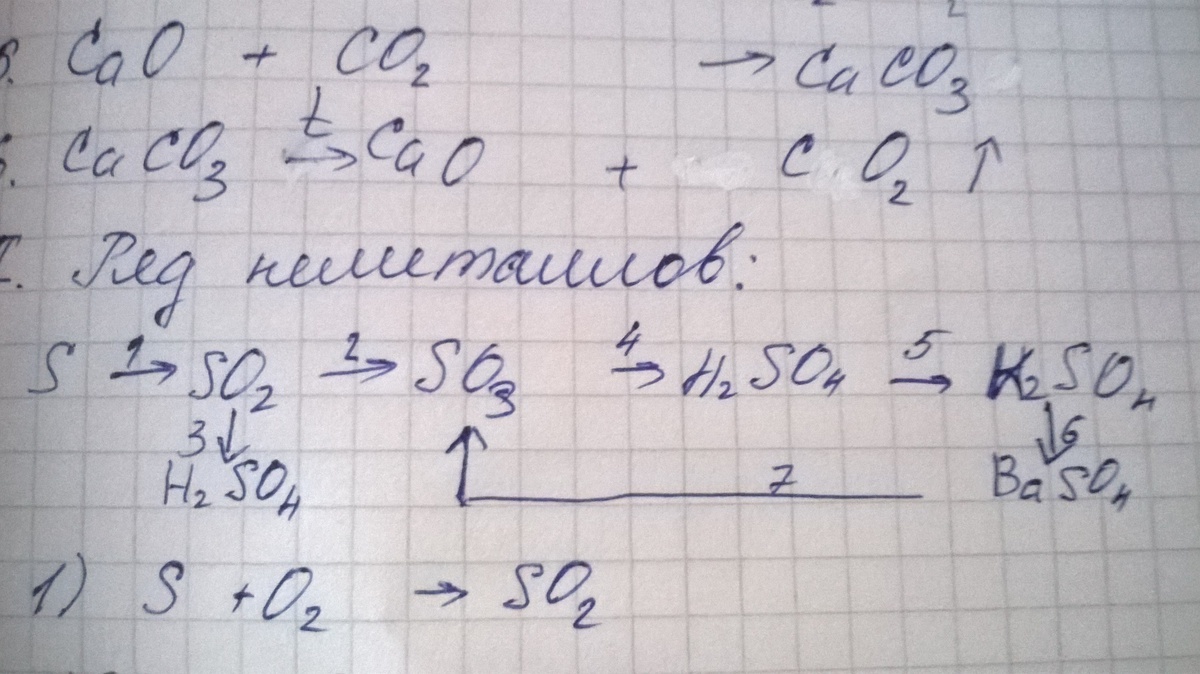 CaO + CO₂ → CaCO₃
CaCO₃ t→ CaO + CO₂ ↑
Ряд неметаллов:
S 1→ SO₂ 2→ SO₃ 4→ H₂SO₄ 5→ K₂SO₄
3↓ ↑ 7 ↓6
H₂SO₄ BaSO₄
1) S + O₂ → SO₂